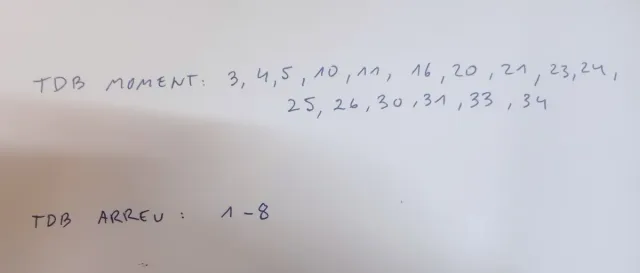 TDB MOMENT: 3, 4, 5, 10, 11, 16, 20, 21, 23, 24,
25, 26, 30, 31, 33, 34
TDB ARREU: 1-8